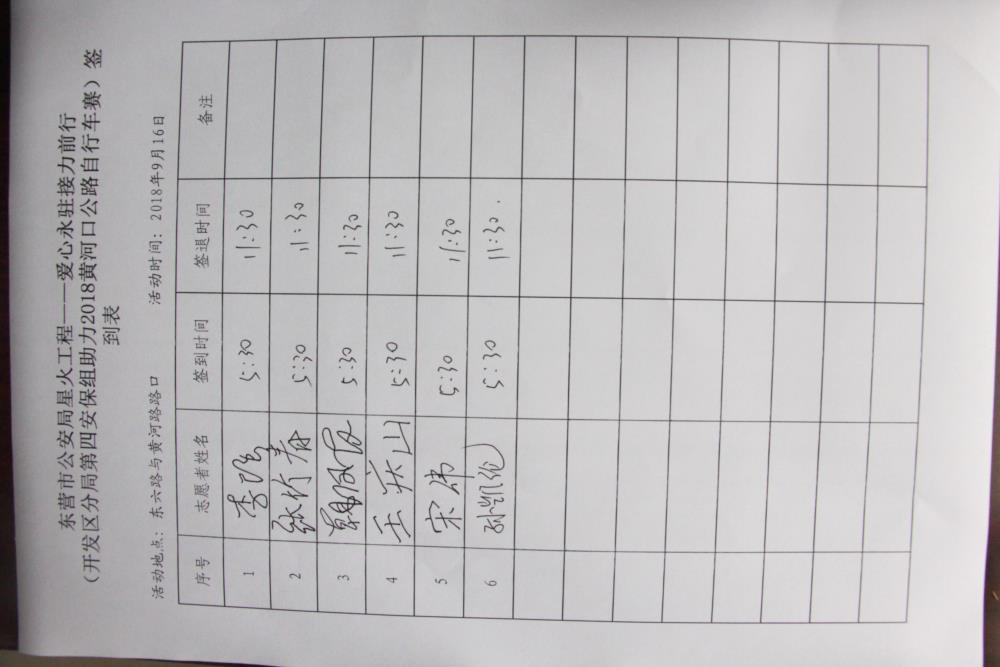 东营市公安局星火工程——爱心永驻接力前行
（开发区分局第四安保组助力2018黄河口公路自行车赛）签
到表
活动地点：东六路与黄河路路口 活动时间：2018年9月16日
序号 志愿者姓名 签到时间 签退时间 备注
1 李强 5:30 11:30
2 张竹春 5:30 11:30
3 5:30 11:30
4 王庆山 5:30 11:30
5 宋伟 5:30 11:30
6 孙凯伦 5:30 11:30.